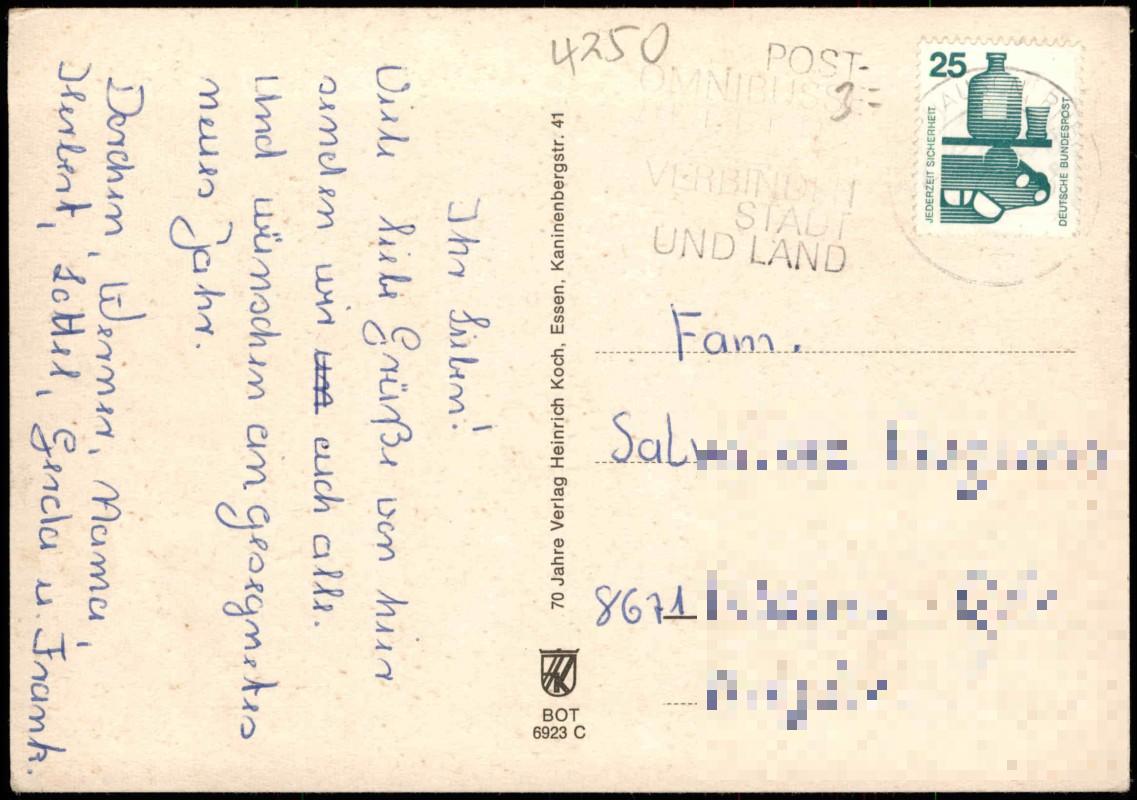 Ihr Lieben!
Viele liebe Grüße von hier
senden wir euch alle.
Und wünschen ein gesegnetes
neues Jahr.
Dorchen, Werner, Mama,
Herbert, Lottel, Gerda u. Frank.
70 Jahre Verlag Heinrich Koch, Essen, Kaninenbergstr. 41
BOT
6923 C
4250
3=
POST-
OMNIBUSSE
VERBINDEN
STADT
UND LAND
25
JEDERZEIT SICHERHEIT
DEUTSCHE BUNDESPOST
Fam.
8671